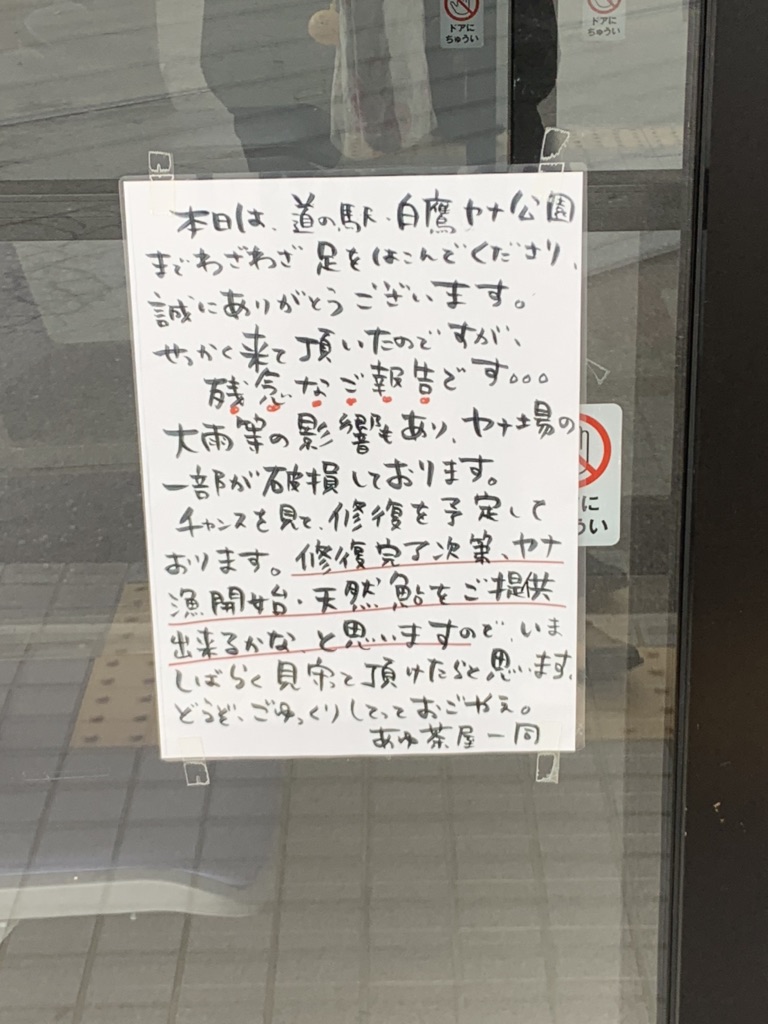 ドアに
ちゅうい
ドアに
ちゅうい
本日は、道の駅・白鷹ヤナ公園
までわざわざ足をはこんでくださり、
誠にありがとうございます。
せっかく来て頂いたのですが、
残念なご報告です。。。
大雨等の影響もあり、ヤナ場の
一部が破損しております。
チャンスを見て、修復を予定して
おります。修復完了次第、ヤナ
漁開始・天然鮎をご提供
出来るかな、と思いますので、いま
しばらく見守って頂けたらと思います。
どうぞ、ごゆっくりしてっておごやえ。
あゆ茶屋一同
に
うい